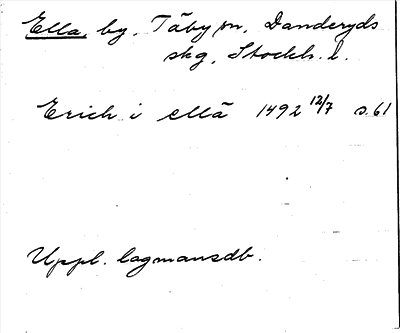 Ella, by, Täby sn, Danderyds
skg, Stockh. l.
Erich i ellä 1492 12/7 s. 61
Uppl. lagmansdb.